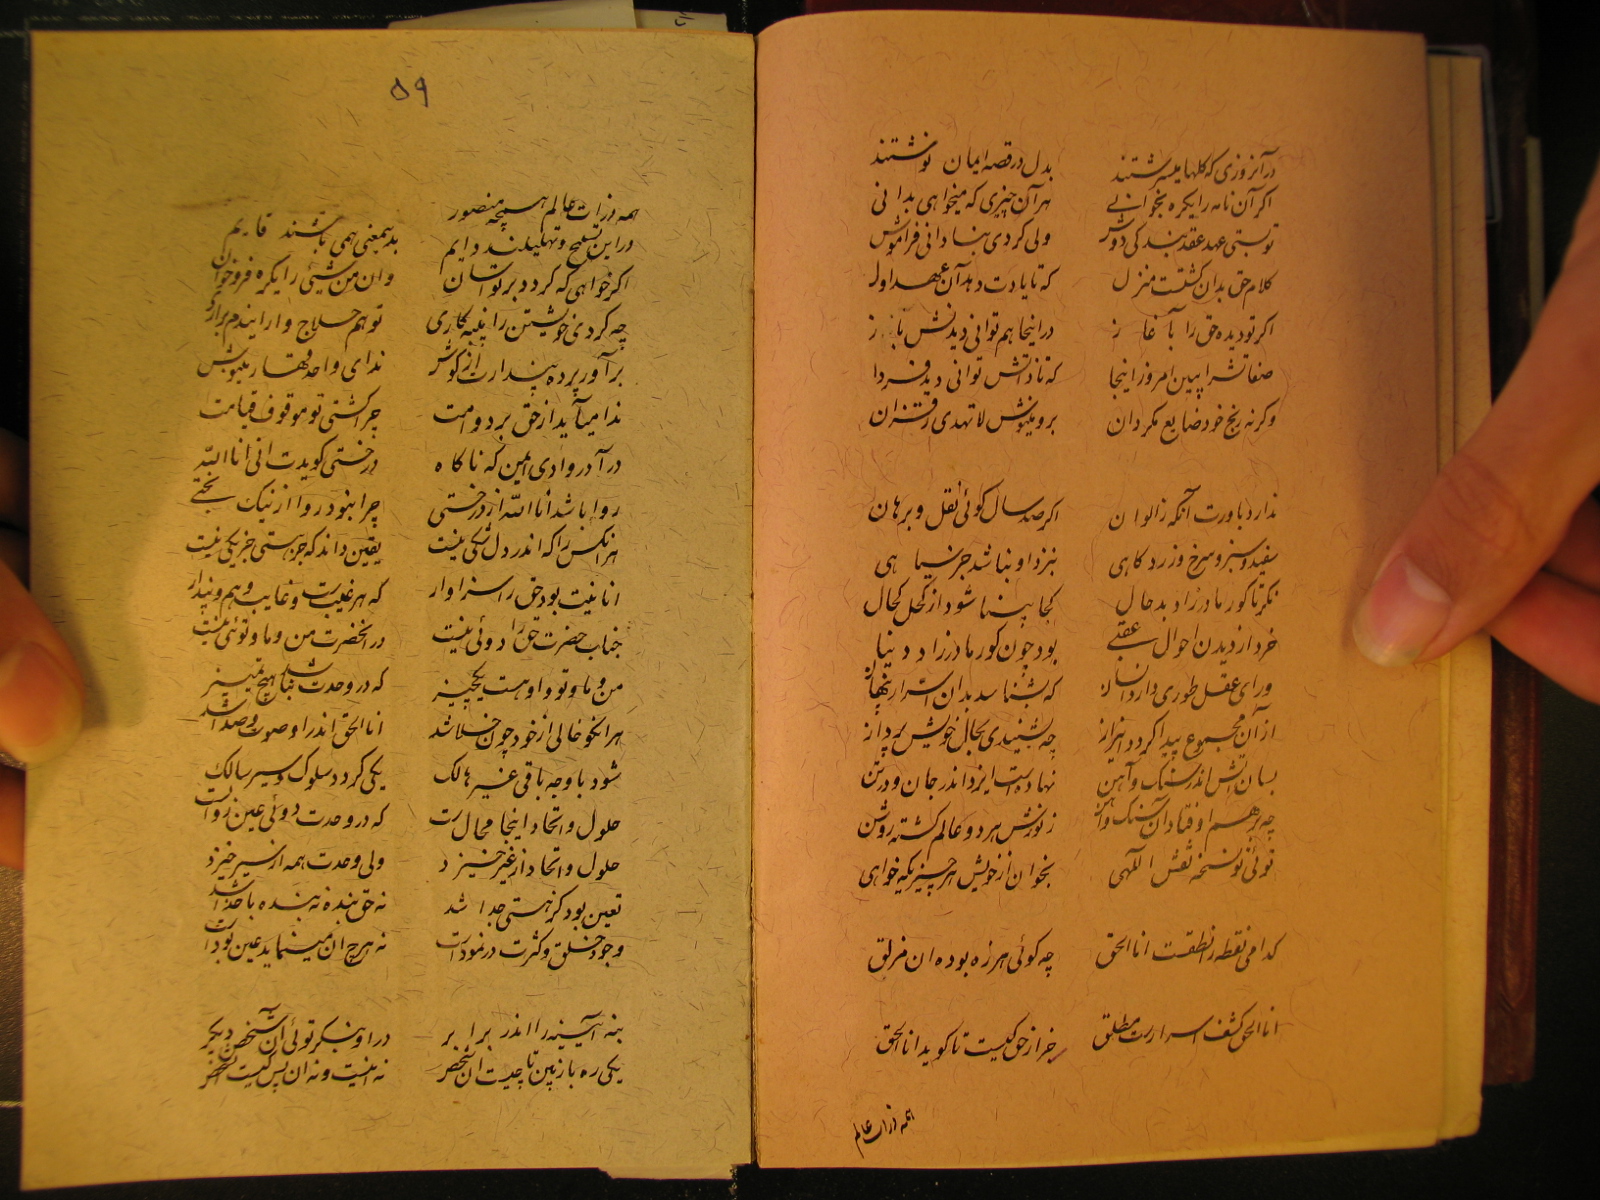 در آنروزی که گلها میسرشتند بدل در قصه ایمان نوشتند
اگر آن نامه را یکره بخوانی هر آن چیزی که میخواهی بدانی
تو بستی عهد عقد بندگی دوش ولی کردی بنادانی فراموش
کلام حق بدان گشتست منزل که تا یادت دهد آن عهد اول
اگر تو دیده حق را بآغاز در اینجا هم توانی دیدنش باز
صفاتش را ببین امروز اینجا که تا ذاتش توانی دید فردا
وگرنه رنج خود ضایع مگردان برو بنیوش لا تهدی ز قرآن
ندارد باورت اکمه ز الوان اگر صد سال گوئی نقل و برهان
سفید و سبز و سرخ و زرد و کاهی بنزد او نباشد جز سیاهی
نگر تا کور مادرزاد بدحال کجا بینا شود از کحل کحال
خرد از دیدن احوال عقبی بود چون کور مادرزاد دنیا
ورای عقل طوری دارد انسان که بشناسد بدان اسرار پنهان
از آن مجموع پیدا گردد این راز چه بشنیدی بحال خویش پرداز
بسان آتش اندر سنگ و آهن نهادست ایزد اندر جان و در تن
چه برهم اوفتاد آن سنگ و آهن ز نورش هر دو عالم گشته روشن
توئی تو نسخه نقش اللهی بخوان از خویش هر چیزیکه خواهی
کدامی نقطه را نطقست اناالحق چه گوئی هرزه بوده ان مزلق
اناالحق کشف اسرارست مطلق جز از حق کیست تا گوید اناالحق
همه ذرات عالم
۵۹
همه ذرات عالم همچه منصور
در این تسبیح و تهلیلند دایم بدیمعنی همی باشند قایم
اگر خواهی که گردد بر تو آسان وان من شیئی را یکره فروخوان
چه کردی خویشتن را پنبه کاری تو هم حلاج وار ایندم برآری
برآور پرده پندارت از گوش ندای واحد قهار بنیوش
ندا میآید از حق بر دوامت چرا گشتی تو موقوف قیامت
درآ در وادی ایمن که ناگاه درختی گویدت انی انا الله
روا باشد انا الله از درختی چرا نبود روا از نیک بختی
هر آنکس را که اندر دل شکی نیست یقین داند که هستی جز یکی نیست
انانیت بود حق را سزاوار که هو غیبت و غایب وهم و پندار
جناب حضرت حق را دوئی نیست در آنحضرت من و ما و توئی نیست
من و ما و تو و او هست یکچیز که در وحدت نباشد هیچ تمییز
هر آنکو خالی از خود چون خلا شد اناالحق اندر او صوت و صدا شد
شود با وجه باقی غیر هالک یکی گردد سلوک و سیر و سالک
حلول و اتحاد اینجا محالست که در وحدت دوئی عین ضلالست
حلول و اتحاد از غیر خیزد ولی وحدت همه از سیر خیزد
تعین بود کز هستی جدا شد نه حق بنده نه بنده با خدا شد
وجود خلق و کثرت در نمودست نه هرچ آن مینماید عین بودست
بنه آیینه را اندر برابر در او بنگر توئی آن شخص دیگر
یکی ره باز بین تا چیست آن عکس نه اینست و نه آن پس کیست آن عکس